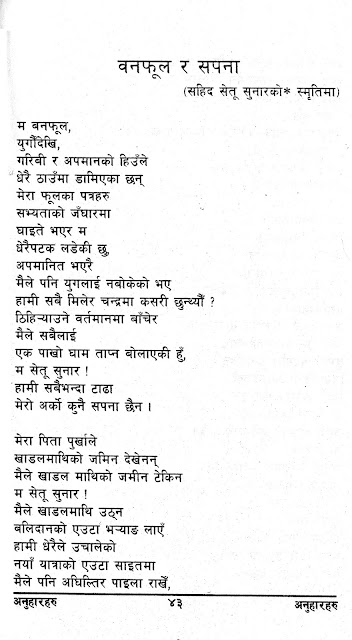 वनफूल र सपना
(सहिद सेतू सुनारको* स्मृतिमा)
म बनफूल,
युगौंदेखि,
गरिवी र अपमानको हिउँले
धेरै ठाउँमा डामिएका छन्
मेरा फूलका पत्रहरु
सभ्यताको जँघारमा
घाइते भएर म
धेरैपटक लडेकी छु,
अपमानित भएरै
मैले पनि युगलाई नबोकेको भए
हामी सबै मिलेर चन्द्रमा कसरी छुन्थ्यौँ ?
ठिहिऱ्याउने वर्तमानमा बाँचेर
मैले सबैलाई
एक पाखो घाम ताप्न बोलाएकी हुँ,
म सेतू सुनार !
हामी सबैभन्दा टाढा
मेरो अर्को कुनै सपना छैन ।
मेरा पिता पुर्खाले
खाडलमाथिको जमिन देखेनन्
मैले खाडल माथिको जमीन टेकिन
म सेतू सुनार !
मैले खाडलमाथि उठ्न
बलिदानको एउटा भऱ्याङ लाएँ
हामी धेरैले उचालेको
नयाँ यात्राको एउटा साइतमा
मैले पनि अघिल्तिर पाइला राखेँ,
अनुहारहरु ४३ अनुहारहरु